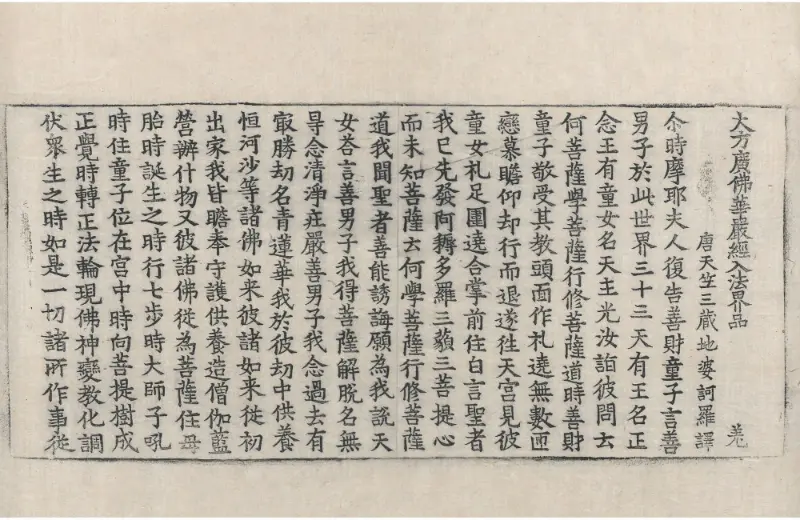 大方廣佛華嚴經入法界品
唐天竺三藏地婆訶羅譯
尒時摩耶夫人復告善財童子言善
男子於此世界三十三天有王名正
念王有童女名天主光汝詣彼問云
何菩薩學菩薩行修菩薩道時善財
童子敬受其教頭面作礼遶無數匝
戀慕瞻仰却行而退遂往天宮見彼
童女礼足圍遶合掌前住白言聖者
我已先發阿耨多羅三藐三菩提心
而未知菩薩云何學菩薩行修菩薩
道我聞聖者善能誘誨願為我說天
女荅言善男子我得菩薩解脫名無
㝵念清淨莊嚴善男子我念過去有
㝡勝劫名青蓮華我於彼劫中供養
恒河沙等諸佛如來彼諸如來從初
出家我皆瞻奉守護供養造僧伽藍
營辦什物又彼諸佛從為菩薩住母
胎時誕生之時行七步時大師子吼
時住童子位在宮中時向菩提樹成
正覺時轉正法輪現佛神變教化調
伏眾生之時如是一切諸所作事從